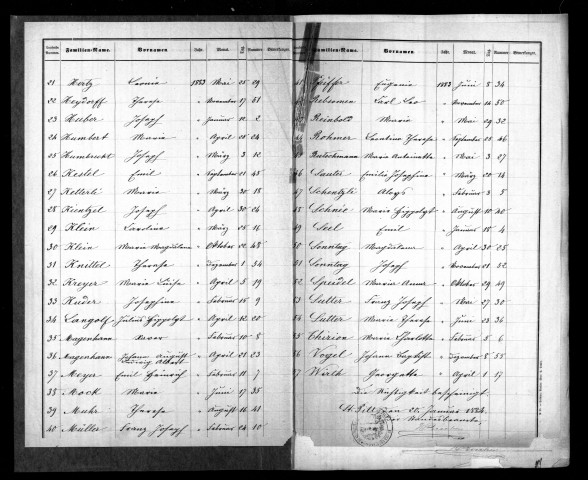 Familien-Name. Vornamen. Jahr. Monat. Tag. Nummer. Bemerkungen.
21 Hertz Leonie 1883 Mai 25 29
22 Heydorff Therese " November 17 51
23 Huber Joseph " Januar 12 2
24 Humbert Maria " April 25 24
25 Humbrecht Joseph " März 3 12
26 Kestel Emil " September 21 45
27 Ketterli Maria " März 30 18
28 Kientzel Joseph " April 30 26
29 Klein Carolina " März 25 16
30 Klein Maria Magdalena " Oktober 22 48
31 Knittel Therese " Dezember 1 54
32 Kreyer Maria Luise " April 5 19
33 Kuder Josephine " Februar 15 9
34 Langolf Julius Hippolyt " April 12 20
35 Magenhann Xaver " Februar 10 8
36 Magenhann Johann August Ludwig Albert " April 21 23
37 Meyer Emil Heinrich " Februar 11 7
38 Mock Maria " Juni 17 35
39 Muhr Therese " August 16 41
40 Müller Franz Joseph " Februar 24 10
Familien-Name. Vornamen. Jahr. Monat. Tag. Nummer. Bemerkungen.
Pfiffer Eugenie 1883 Juni 5 34
Rebsomen Karl Leo " November 14 50
Reinbold Maria " Mai 29 32
Rohmer Leontine Therese " September 25 46
Rutschmann Maria Antoinette " Mai 3 27
Sauter Emilie Josephine " März 20 14
Schentzle Aloys " Februar 3 5
Schnée Maria Hippolyt " August 10 40
49 Seel Emil " Januar 15 4
50 Sonntag Magdalena " April 30 25
51 Sonntag Joseph " November 21 52
52 Speidel Maria Anna " Oktober 29 49
53 Sutter Franz Joseph " Mai 27 30
54 Sutter Maria Therese " Juni 23 36
55 Thirion Maria Charlotte " Februar 5 6
56 Vogel Johann Baptist " Dezember 8 55
57 Wirth Georgette " April 1 17
Die Richtigkeit bescheinigt.
St. Pilt, den 22. Januar 1884.
Der Standesbeamte,